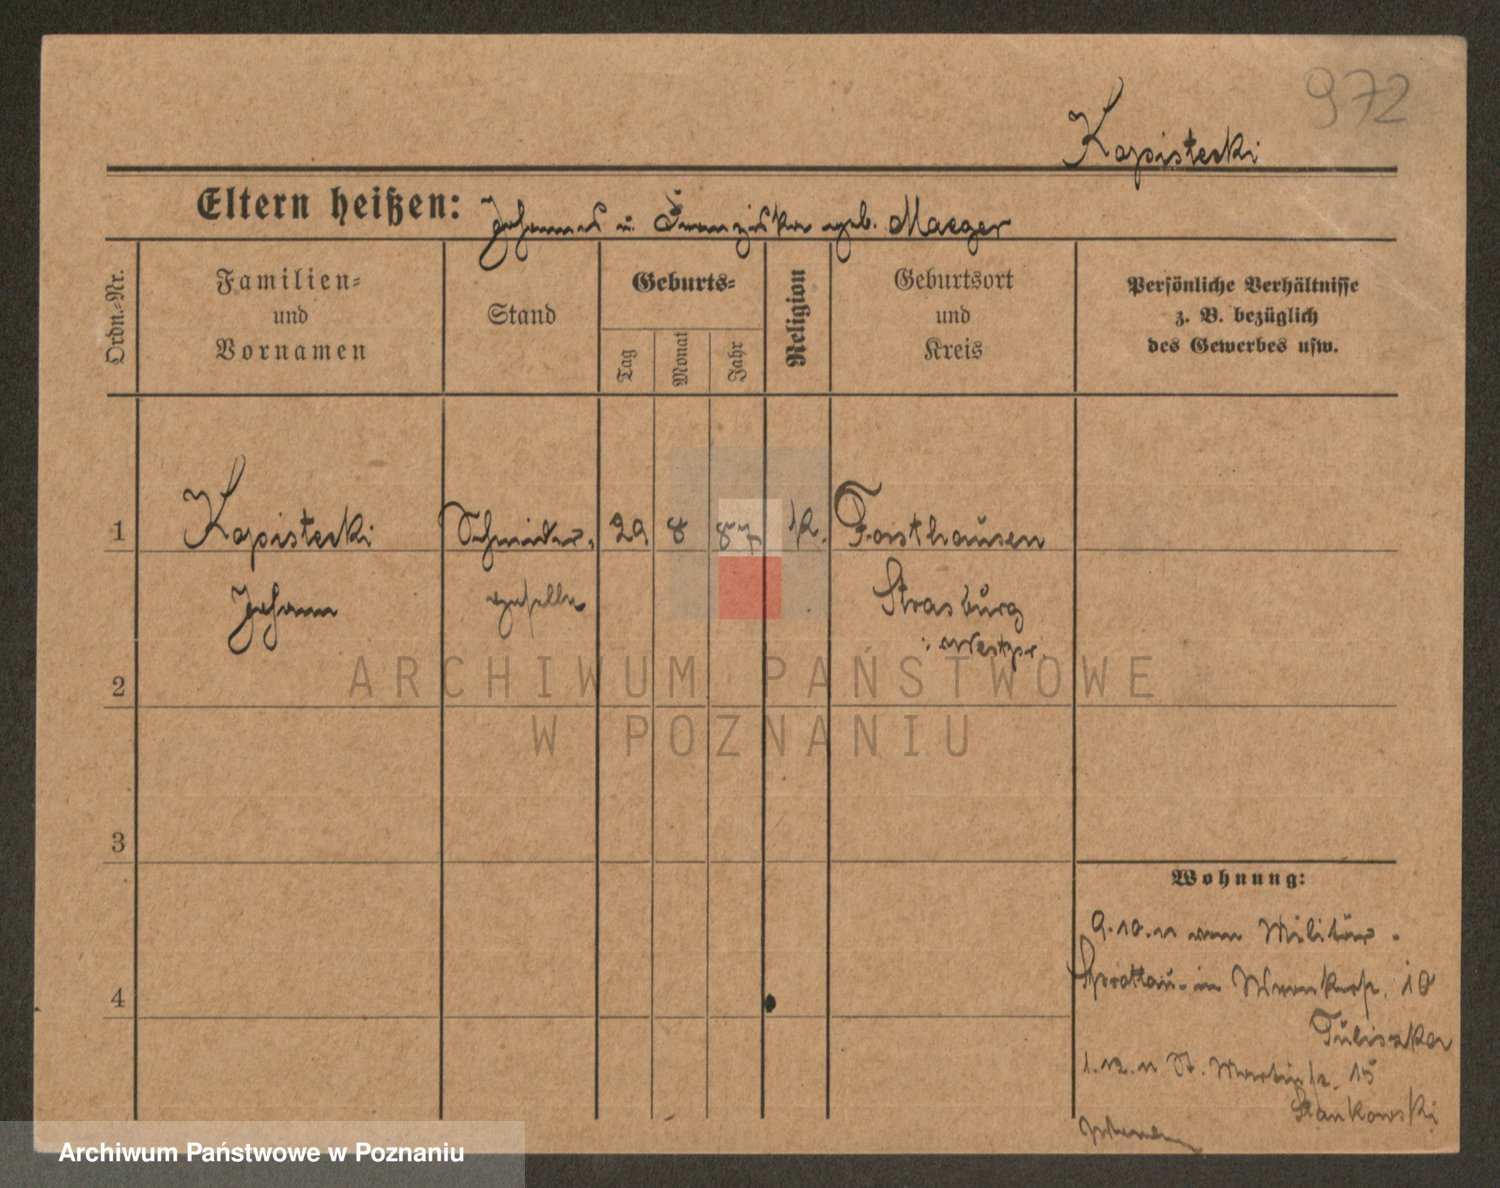 972
Kapistecki
Eltern heißen: Johannes u. Franziska geb. Maeger
Ordn.-Nr.
Familien-
und
Vornamen
Stand
Geburts-
Tag
Monat
Jahr
Religion
Geburtsort
und
Kreis
Persönliche Verhältnisse
z. B. bezüglich
des Gewerbes usw.
1
Kapistecki
Johann
Schneider-
geselle
29
8
87
k.
Forsthausen
Strasburg
i. Westpr.
2
3
4
Wohnung:
9.10.11 vom Militär -
Sprottau - in Wronkerstr. 10
Tuliszka
1.12.11 St. Martinstr. 15
Stankowski
ARCHIWUM PAŃSTWOWE
W POZNANIU
Archiwum Państwowe w Poznaniu